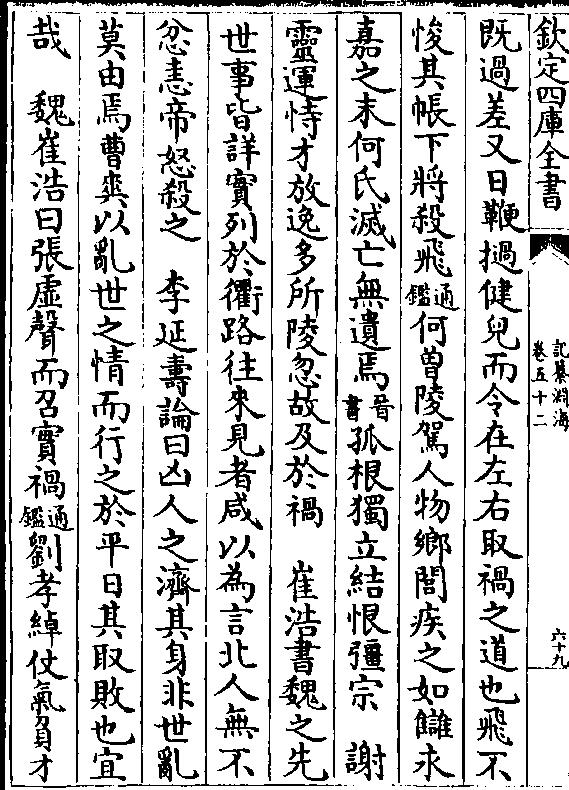 欽定四庫全書
記纂淵海
卷五十二
六十九
既過差又日鞭撾健兒而令在左右取禍之道也飛不
悛其帳下將殺飛通鑑何曾陵駕人物鄉閭疾之如讎永
嘉之末何氏滅亡無遺焉晉書孤根獨立結恨彊宗　謝
靈運恃才放逸多所陵忽故及於禍　崔浩書魏之先
世事皆詳實列於衢路往來見者咸以為言北人無不
忿恚帝怒殺之　李延壽論曰凶人之濟其身非世亂
莫由焉曹爽以亂世之情而行之於平日其取敗也宜
哉　魏崔浩曰張虛聲而召實禍通鑑劉孝綽仗氣負才